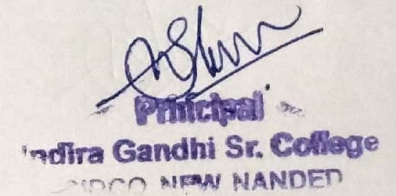 Principal
Indira Gandhi Sr. College
CIDCO NEW NANDED